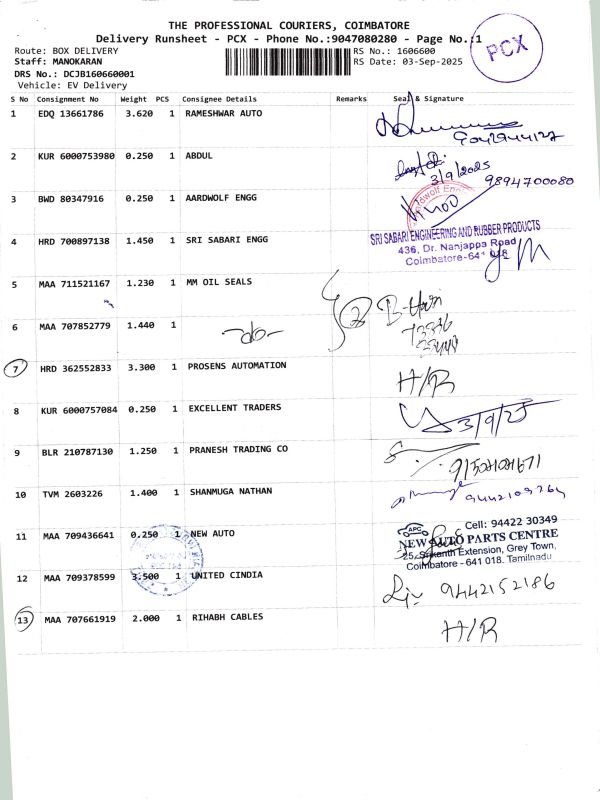 THE PROFESSIONAL COURIERS, COIMBATORE
Delivery Runsheet - PCX - Phone No.:9047080280 - Page No.:1
PCX
Route: BOX DELIVERY
RS No.: 1606600
Staff: MANOKARAN
RS Date: 03-Sep-2025
DRS No.: DCJB160660001
Vehicle: EV Delivery
S No Consignment No Weight PCS Consignee Details Remarks Seal & Signature
1 EDQ 13661786 3.620 1 RAMESHWAR AUTO
2 KUR 6000753980 0.250 1 ABDUL
3/9/2025
9894700080
3 BWD 80347916 0.250 1 AARDWOLF ENGG
4 HRD 700897138 1.450 1 SRI SABARI ENGG
SRI SABARI ENGINEERING AND RUBBER PRODUCTS
436, Dr. Nanjappa Road
Coimbatore-641 018
5 MAA 711521167 1.230 1 MM OIL SEALS
6 MAA 707852779 1.440 1 -do-
7 HRD 362552833 3.300 1 PROSENS AUTOMATION
H/R
8 KUR 6000757084 0.250 1 EXCELLENT TRADERS
3/9/25
9 BLR 210787130 1.250 1 PRANESH TRADING CO
10 TVM 2603226 1.400 1 SHANMUGA NATHAN
9442109264
11 MAA 709436641 0.250 1 NEW AUTO
APC
Cell: 94422 30349
NEW AUTO PARTS CENTRE
25, Srikanth Extension, Grey Town,
Coimbatore - 641 018. Tamilnadu
12 MAA 709378599 3.500 1 UNITED CINDIA
9442152186
13 MAA 707661919 2.000 1 RIHABH CABLES
H/R